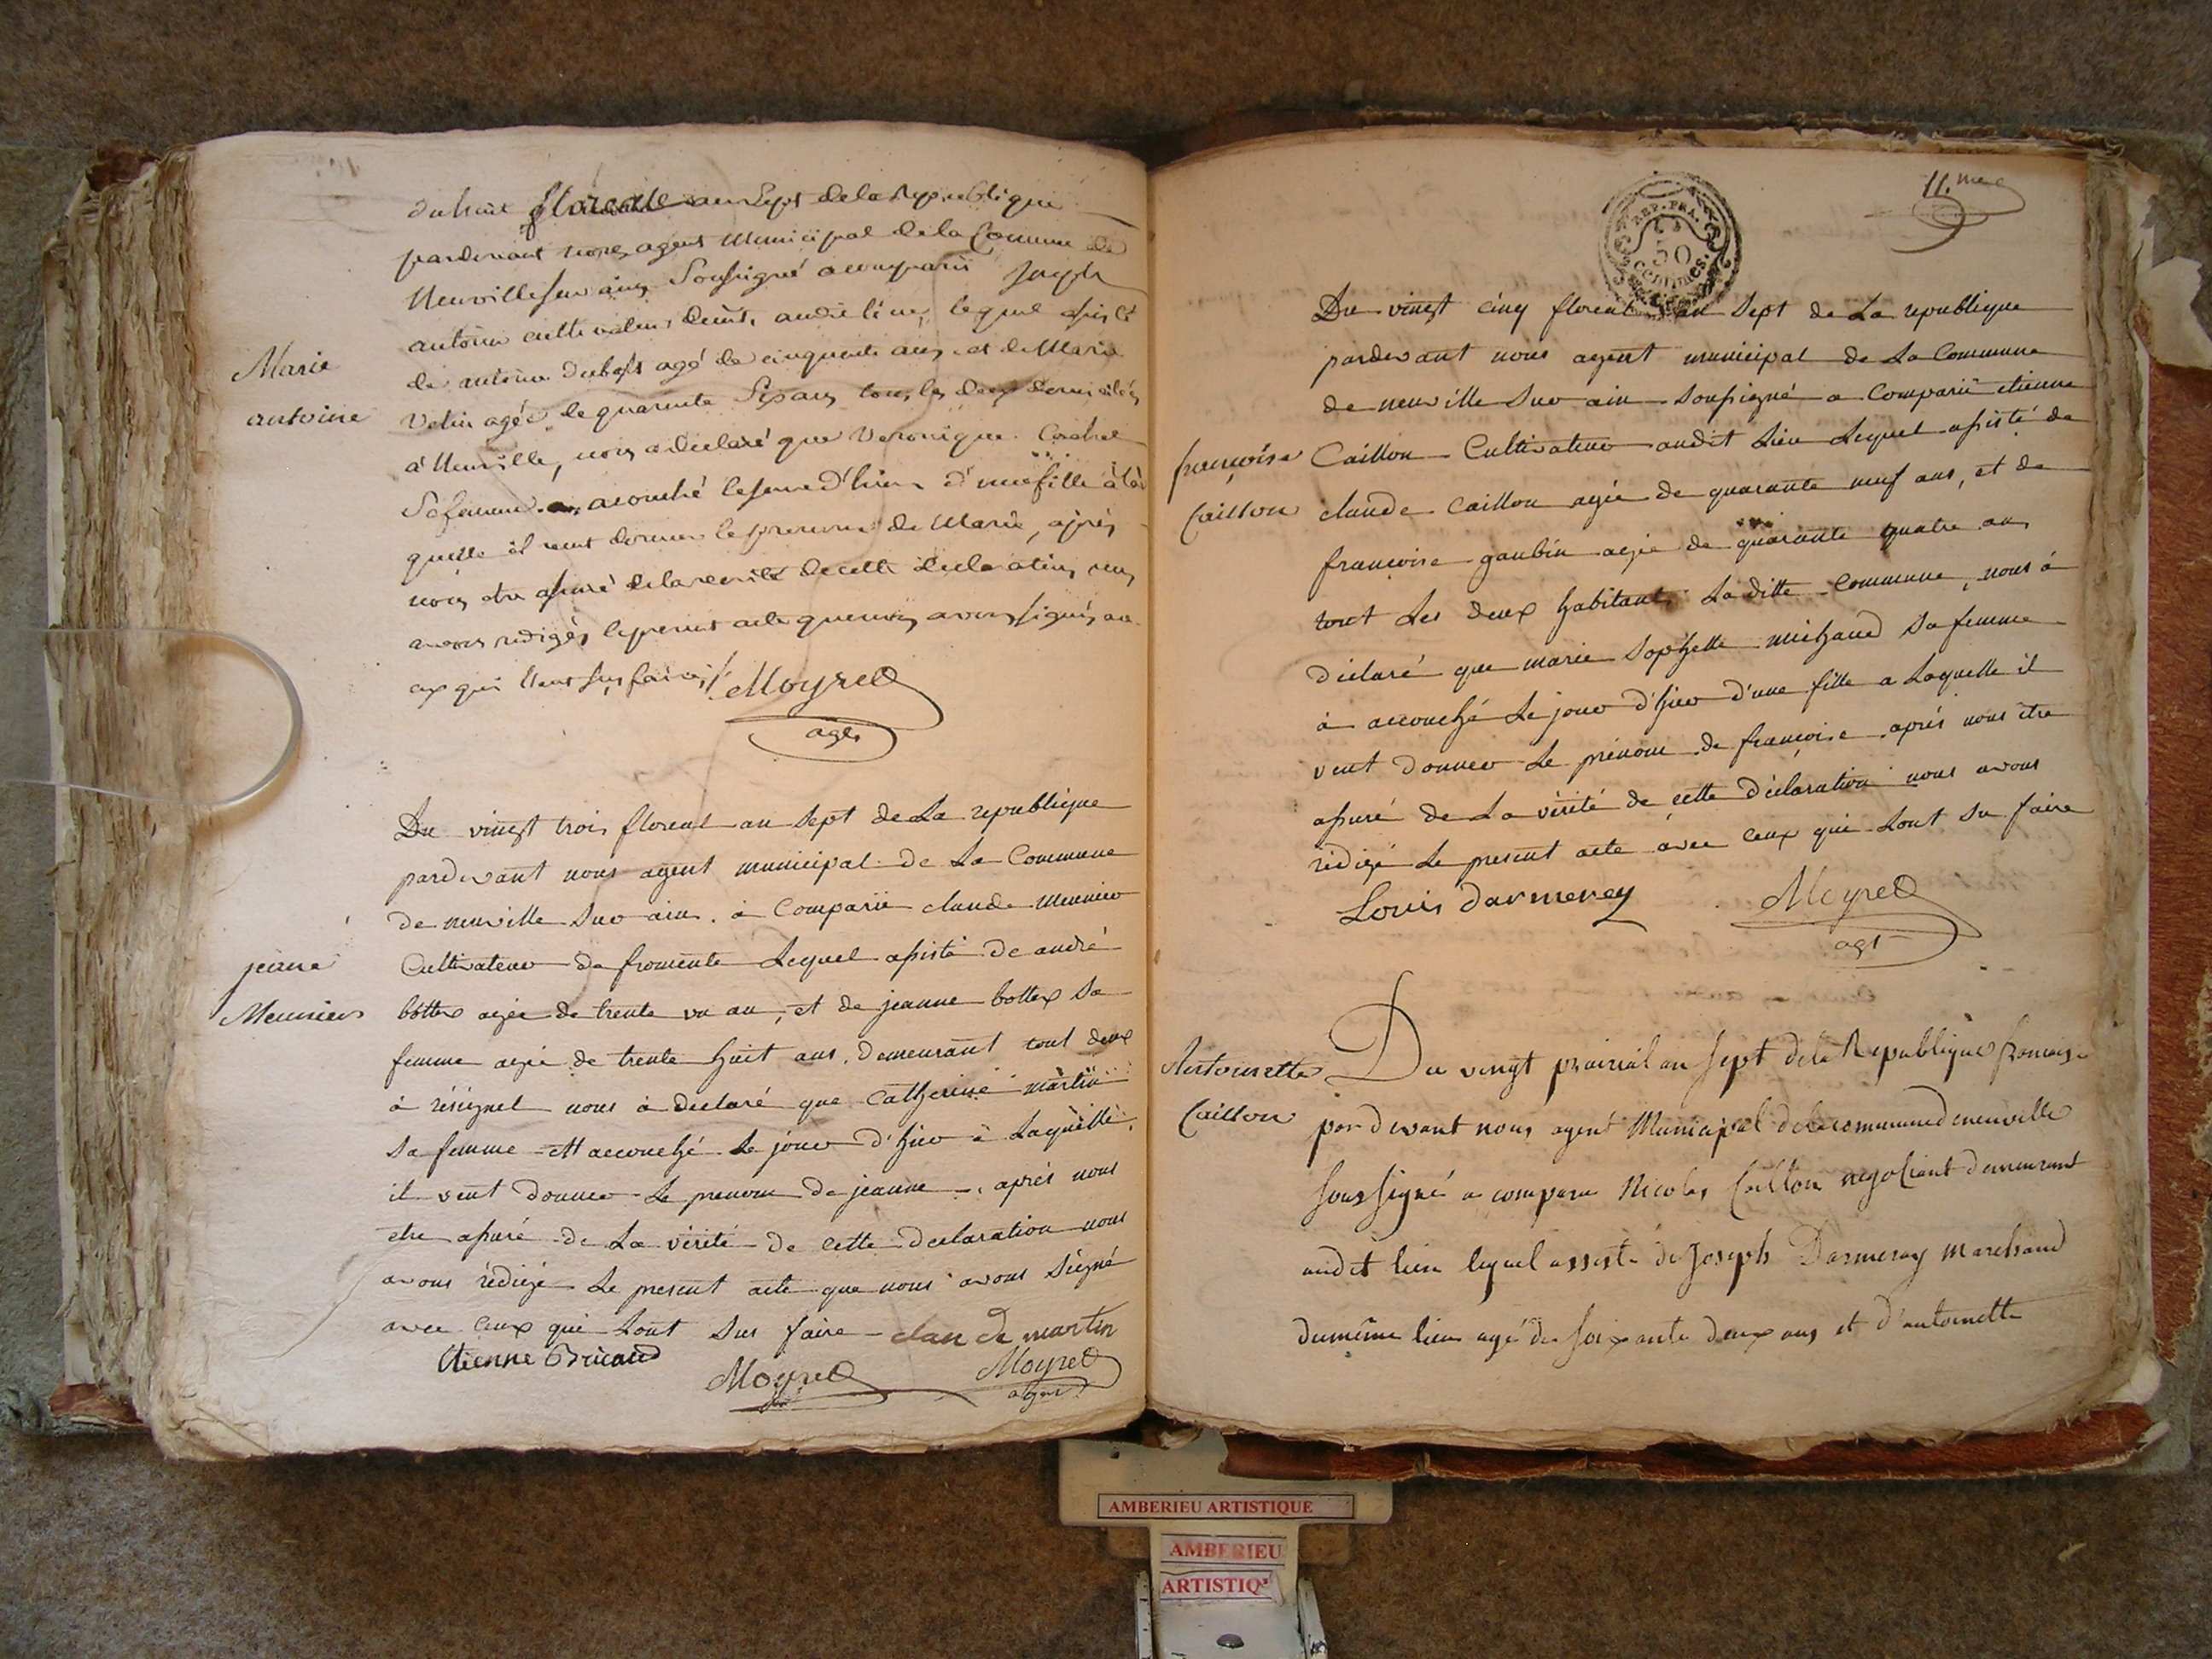 du huit floreal an Sept de la Republique
pardevant nous agent Municipal de la Commune de
Neuville sur ain Soussigné a comparu Joseph
antoine cultivateur audit lieu, lequel assisté
de antoine dubost agé de cinquante ans et de Marie
Velin agée de quarante Six ans tous les deux domiciliés
à Neuville, nous a déclaré que Veronique
Sa femme a acouché le jour d'hier d'une fille à la
quelle il veut donner le prenom de Marie, après
nous etre assuré de la verité de cette declaration nous
avons redigés le present acte que nous avons signés avec
ceux qui l'ont su faire
Moyret
agt
Marie
antoine
Du vingt trois floreal an Sept de La republique
pardevant nous agent municipal de La Commune
de neuville Sur ain. à Comparü claude meunier
Cultivateur de fromente Lequel assisté de andré
bottex agée de trente un an, et de jeanne bottex Sa
femme agée de trente huit ans, demeurant tout deux
à résignel nous à declaré que Catherine martin
Sa femme est accouchée Le jour d'hier à Laquelle
il veut donner Le prenom de jeanne, après nous
etre assuré de La vérité de cette declaration nous
avons rédigé Le present acte que nous avons Signé
avec ceux qui Lont Sus faire claude martin
Etienne Bricaud
Moyret
Moyret
agent
jeanne
Meunier
11.me
REP. FRA.
50
CENTIMES.
Du vingt cinq floreal an Sept de La republique
pardevant nous agent municipal de La Commune
de neuville Sur ain Soussigné a Comparü etienne
Caillon Cultivateur audit Lieu Lequel assisté de
claude Caillon agée de quarante neuf ans, et de
francoise gaubin agée de quarante quatre ans
tout Les deux habitants La ditte Commune, nous à
déclaré que marie Michaud Sa femme
à accouché Le jour d'hier d'une fille a Laquelle il
veut donner Le prénom de françoise après nous être
assuré de La vérité de cette déclaration nous avons
rédigé Le present acte avec Ceux qui Lont Su faire
Louis Darmeney
Moyret
agt
françoise
Caillon
Du vingt prairial an sept de la Republique francaise
par devant nous agent Municipal de la commune de neuville
sous signé a comparu Nicolas Caillon negociant demeurant
audit lieu lequel assisté de Joseph Darmeney marchand
du même lieu agé de soixante deux ans et d'antoinette
Antoinette
Caillon
AMBERIEU ARTISTIQUE
AMBERIEU
ARTISTIQ